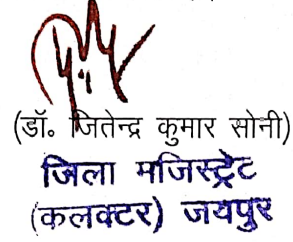 (डॉ॰ जितेन्द्र कुमार सोनी)
जिला मजिस्ट्रेट
(कलक्टर) जयपुर